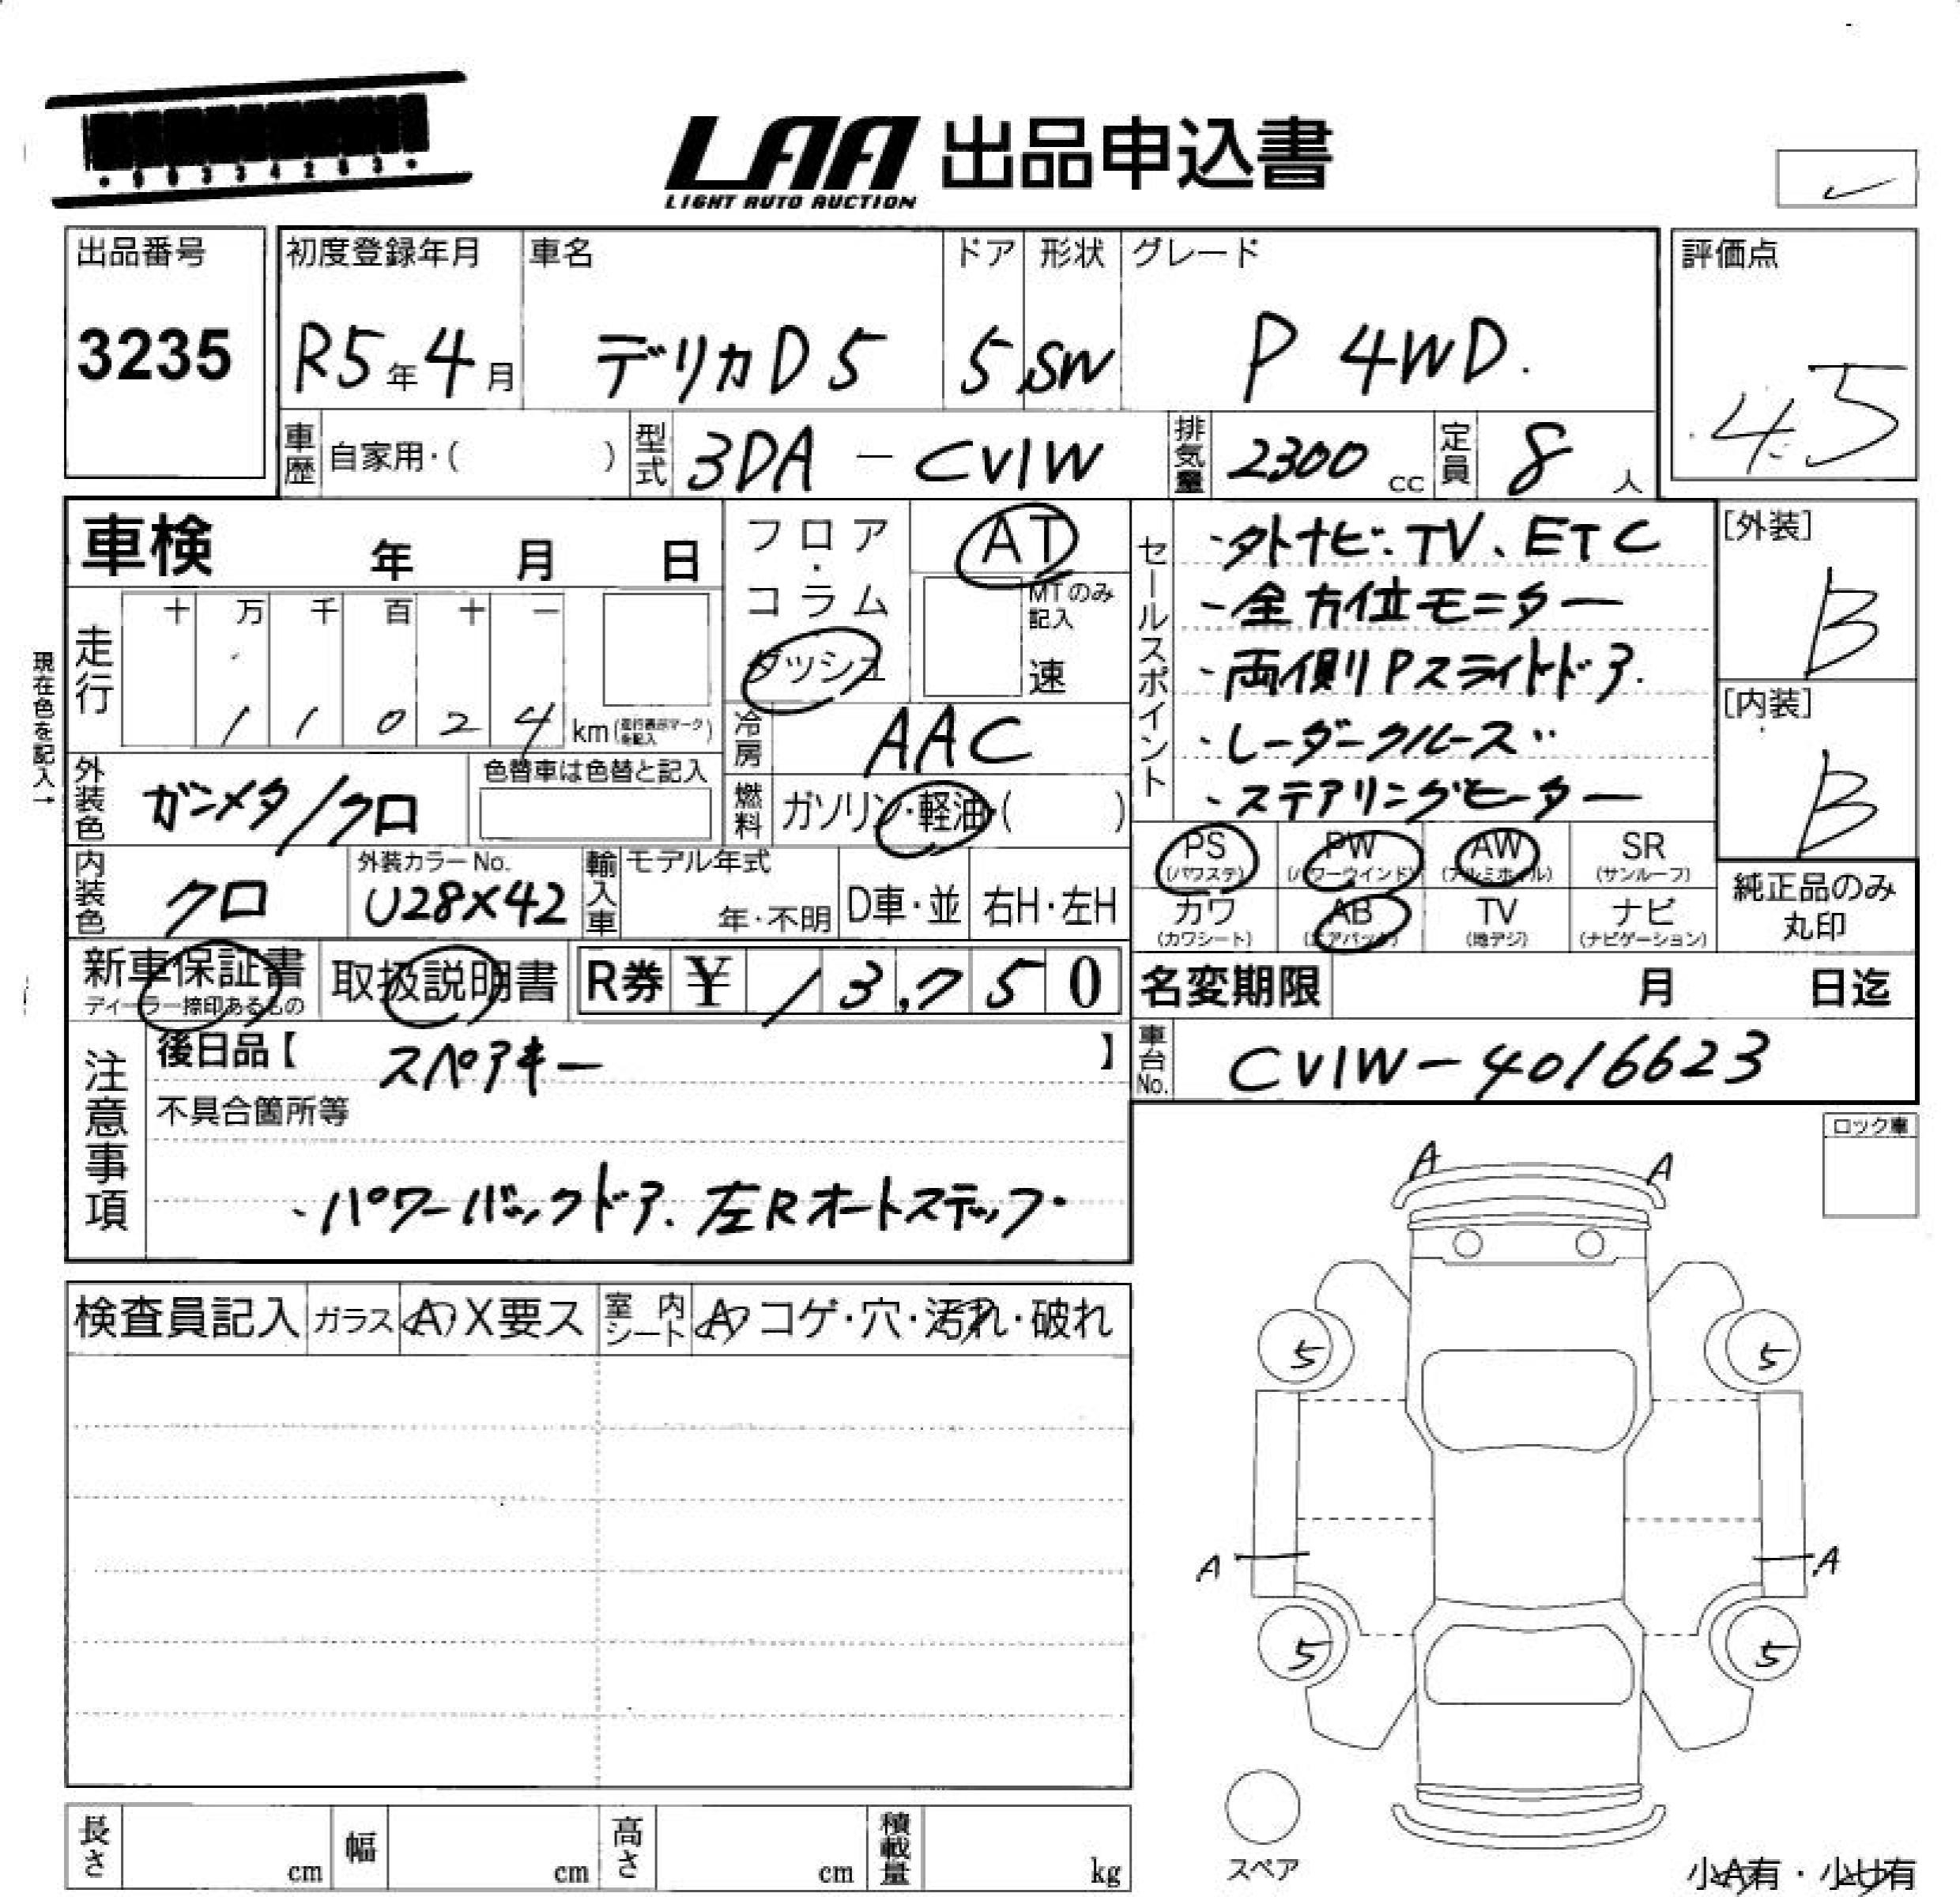 LAA 出品申込書
LIGHT AUTO AUCTION
出品番号
3235
初度登録年月
R5年4月
車名
デリカD5
ドア
5
形状
SW
グレード
P 4WD.
評価点
4.5
車歴 自家用・( )
型式 3DA-CV1W
排気量 2300 cc
定員 8 人
車検 年 月 日
フロア・コラム
ダッシュ
AT
MTのみ記入
速
セールスポイント
・外ナビ、TV、ETC
・全方位モニター
・両側Pスライドドア.
・レーダークルーズ
・ステアリングヒーター
[外装]
B
[内装]
B
現在色を記入→
走行
十 万 千 百 十 一
1 1 0 2 4 km(走行表示マークを記入)
冷房 AAC
外装色 ガンメタ/クロ
色替車は色替と記入
燃料 ガソリン・軽油・( )
内装色 クロ
外装カラーNo.
U28X42
輸入車
モデル年式
年・不明
D車・並
右H・左H
PS (パワステ)
PW (パワーウインド)
AW (アルミホイル)
SR (サンルーフ)
カワ (カワシート)
AB (エアバッグ)
TV (地デジ)
ナビ (ナビゲーション)
純正品のみ丸印
新車保証書
ディーラー捺印あるもの
取扱説明書
R券 ¥ 13,750
名変期限 月 日迄
注意事項
後日品【 スペアキー 】
不具合箇所等
・パワーバックドア、左Rオートステップ・
車台No. CV1W-4016623
ロック車
A A
5 5
A A
5 5
スペア
小A有・小U有
検査員記入 ガラス A X要ス
室内シート A コゲ・穴・汚れ・破れ
長さ cm 幅 cm 高さ cm 積載量 kg